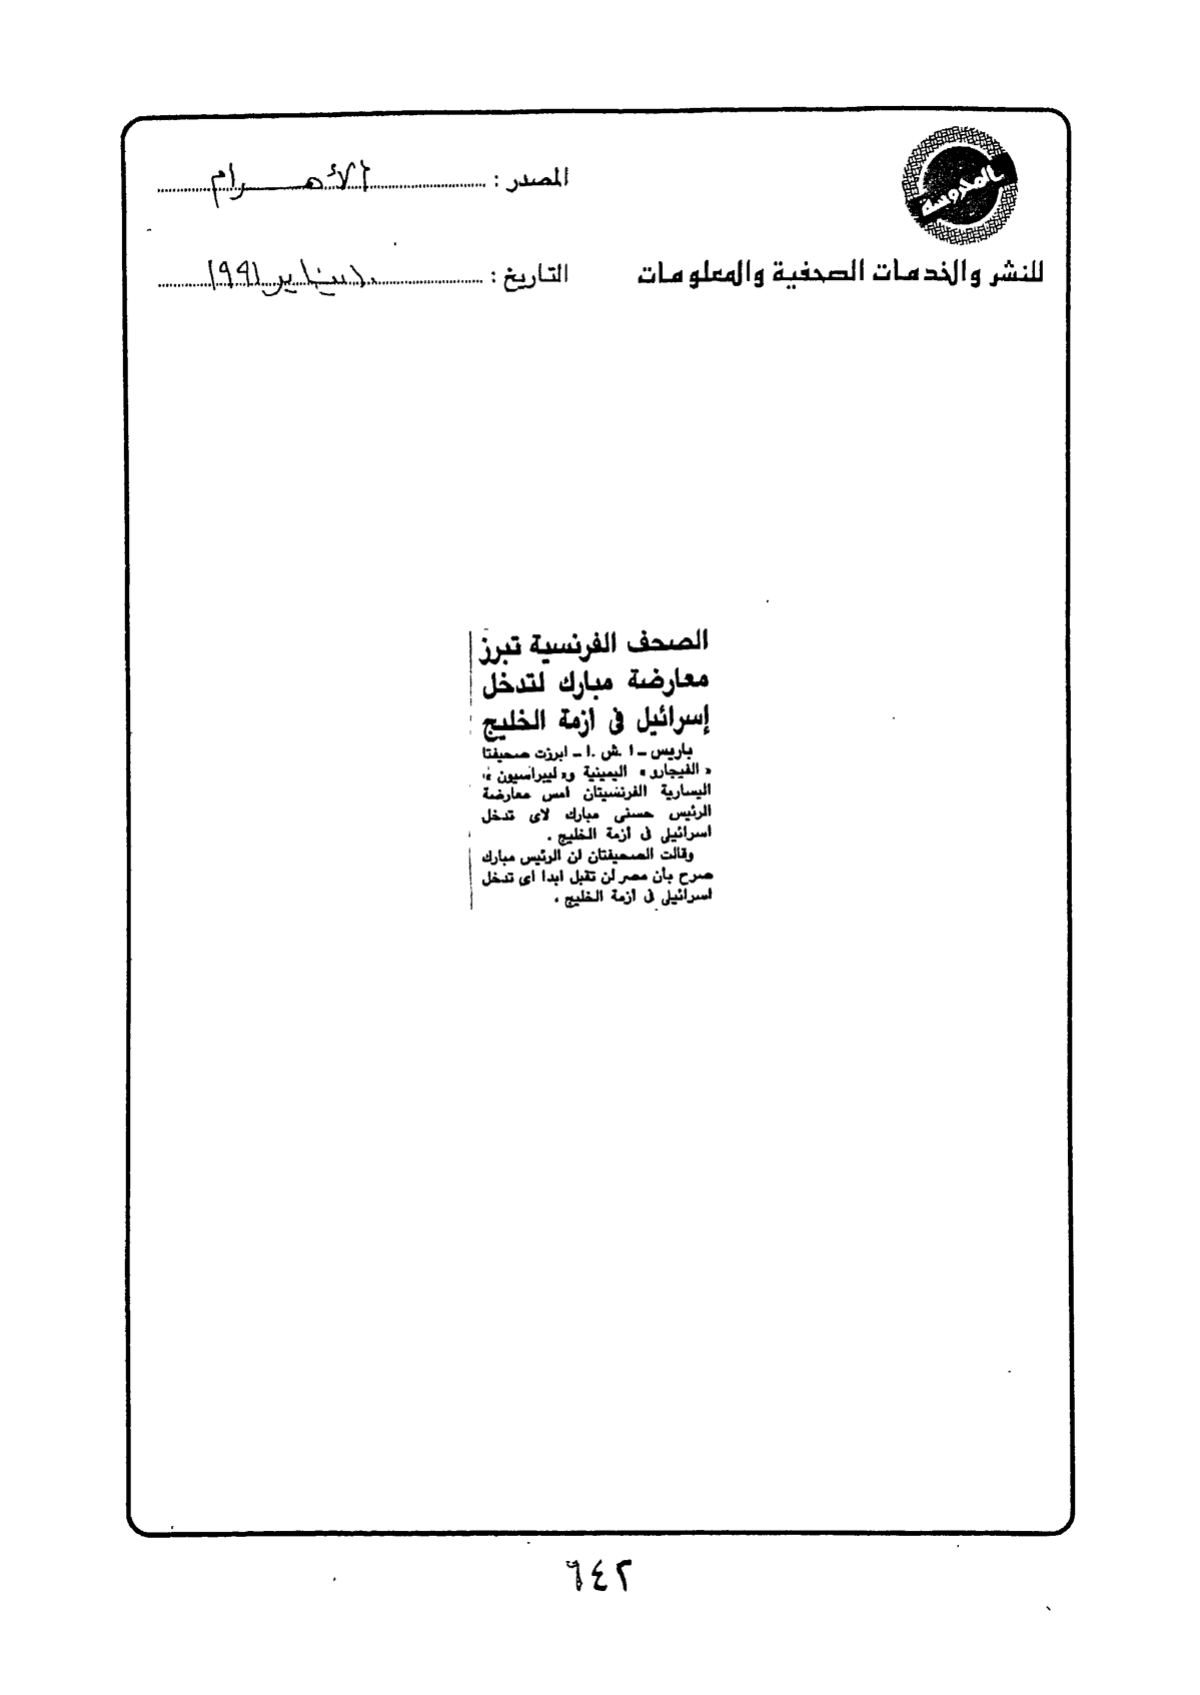 المحروسة
للنشر والخدمات الصحفية والمعلومات
المصدر : الأهرام
التاريخ : ١٠ يناير ١٩٩١
الصحف الفرنسية تبرز
معارضة مبارك لتدخل
إسرائيل فى ازمة الخليج
باريس ــ ا .ش .ا ــ ابرزت صحيفتا
« الفيجارو » اليمينية و« ليبراسيون »
اليسارية الفرنسيتان امس معارضة
الرئيس حسنى مبارك لاى تدخل
اسرائيلى فى ازمة الخليج .
وقالت الصحيفتان ان الرئيس مبارك
صرح بأن مصر لن تقبل ابدا اى تدخل
اسرائيلى فى ازمة الخليج .
٦٤٢